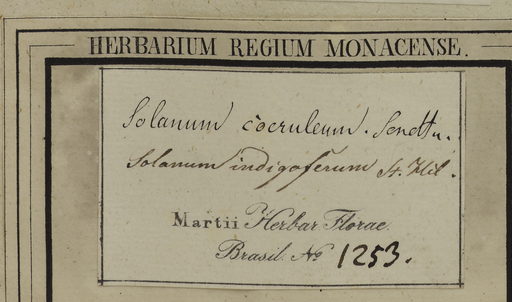 HERBARIUM REGIUM MONACENSE.
Solanum coeruleum. Sendtn.
Solanum indigoferum St. Hil.
Martii Herbar. Florae
Brasil. No 1253.